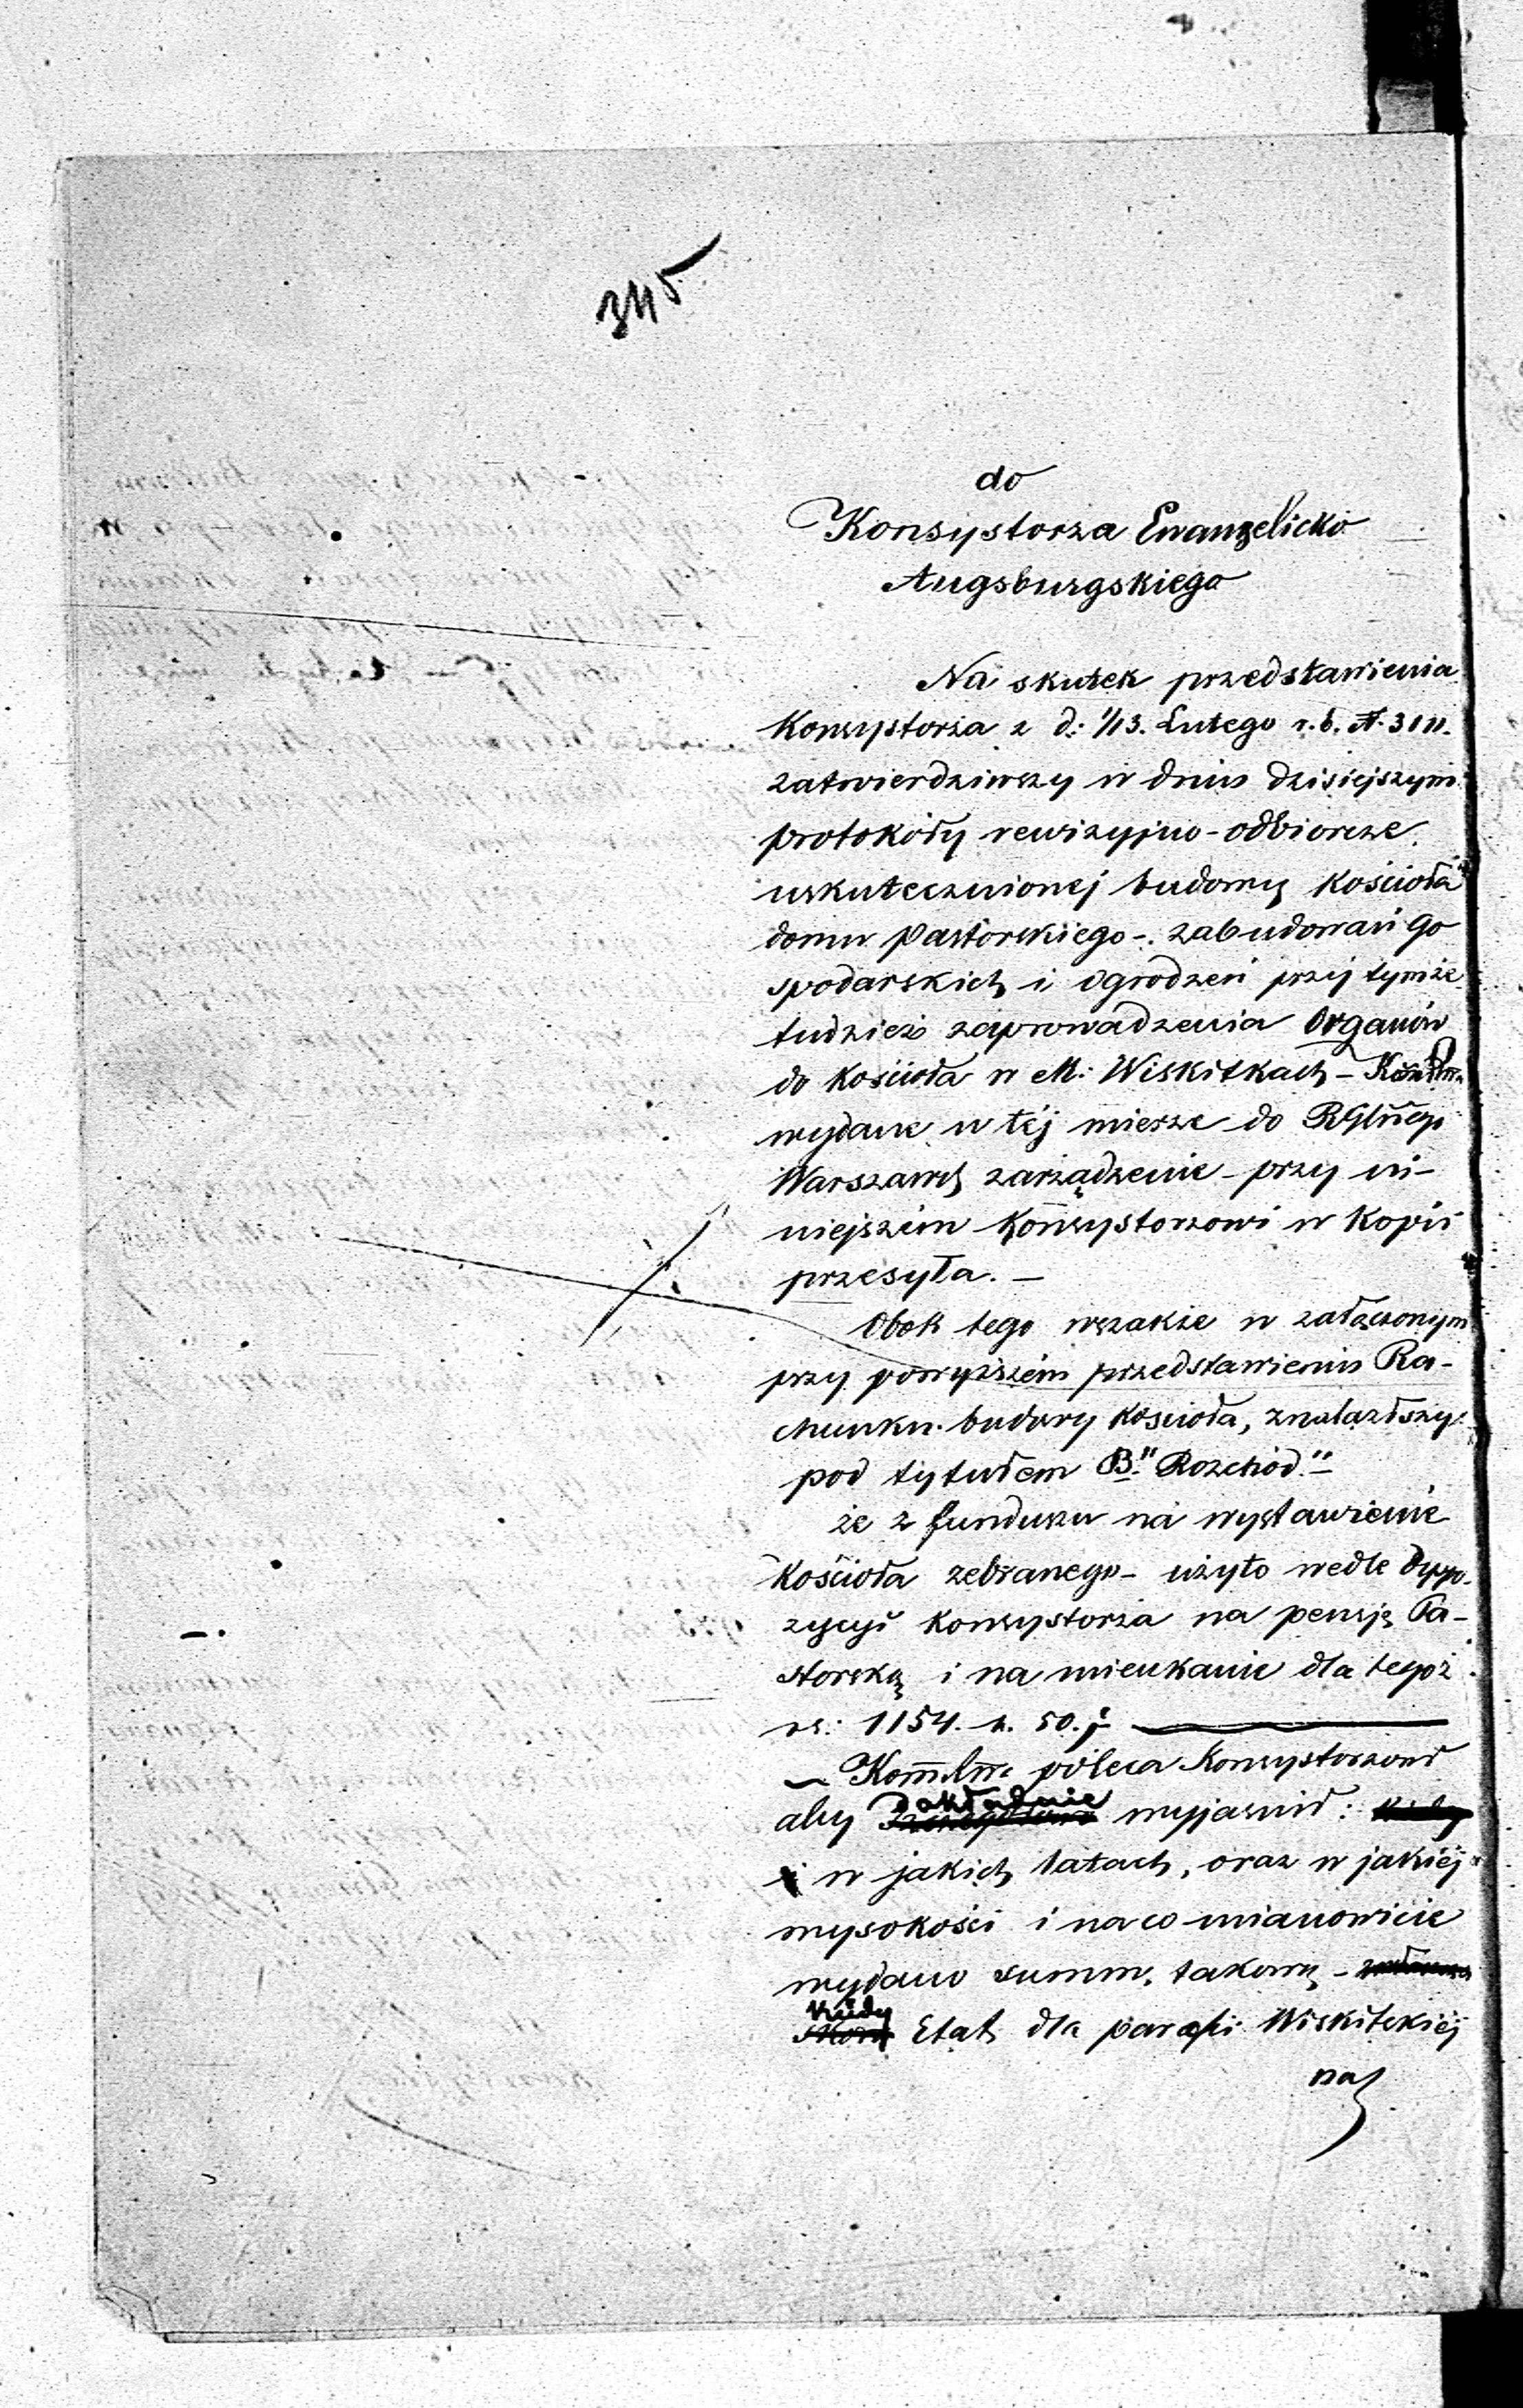 345
do
Konsystorza Ewangelicko
Augsburgskiego
Na skutek przedstawienia
Konsystorza z d: 1/13. Lutego r. b. N. 311.
zatwierdziwszy w dniu dzisiejszym
protokóły rewizyjno-odbiorcze
uskutecznionej budowy Kościoła
domu Pastorskiego-. zabudowań go
spodarskich i ogrodzeń przy tymże
tudzież zaprowadzenia Organów
do kościoła w M: Wiskitkach -
wydane w téj mierze do RGłnego
Warszawsk zarządzenie - przy ni-
niejszém Konsystorzowi w Kopii
przesyła. -
Obok tego wszakże w załączonym
przy powyższém przedstawieniu Ra-
chunku budowy Kościoła, znalazłszy
pod tytułem B." Rozchód."
że z funduszu na wystawienie
Kościoła zebranego - użyto wedle dyspo-
zycyi Konsystorza na pensję Pa-
storską i na mieszkanie dla tegoż
rs: 1154. k. 50.
aby dokładnie wyjaśnił:
w jakich latach, oraz w jakiéj
wysokości i na co mianowicie
wydano summ. takową -
Kiedy Etat dla parafii Wiskitskiéj
na